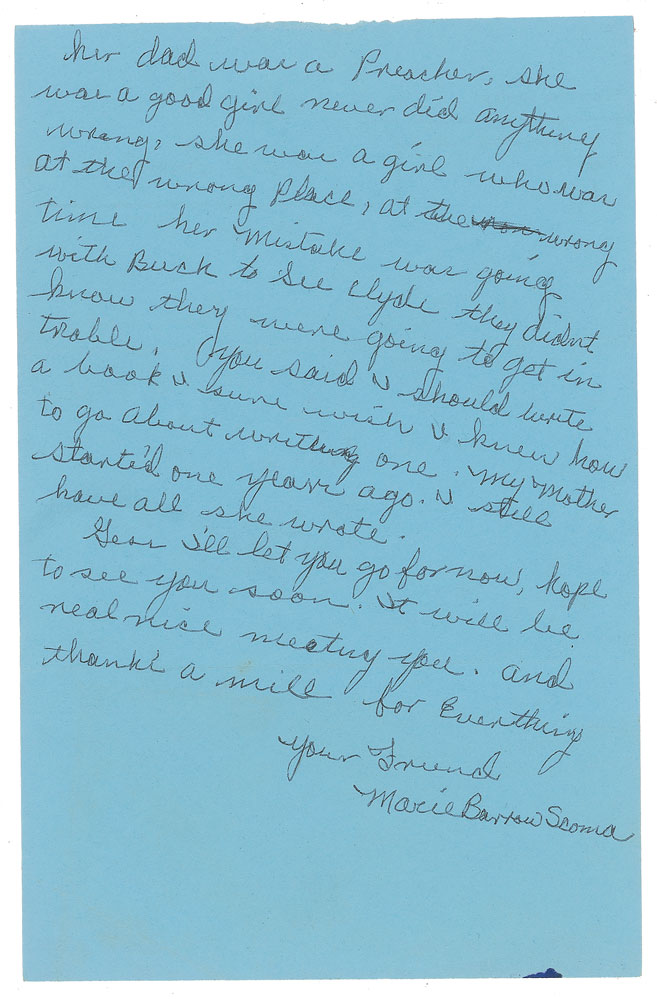 her dad was a Preacher, she
was a good girl never did anything
wrong, she was a girl who was
at the wrong Place, at the wrong
time her mistake was going
with Buck to See Clyde they didnt
know they were going to get in
troble. You said I should write
a book I sure wish I knew how
to go about writing one. My Mother
started one years ago. I still
have all she wrote.
I'll let you go for now, hope
to see you soon. It will be
real nice meeting you. and
thank's a mill for Everthing
Your Friend
Marie Barrow Scoma